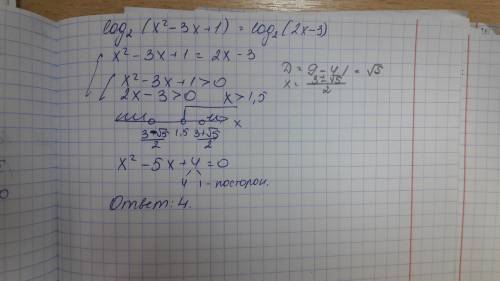 log₂(x²-3x+1) = log₂(2x-3)
x²-3x+1 = 2x-3
x²-3x+1>0
2x-3>0 x>1,5
D = 9-4 = √5
x = (3±√5)/2
(3-√5)/2 1,5 (3+√5)/2 x
x²-5x+4=0
4 1 - посторон.
Ответ: 4.